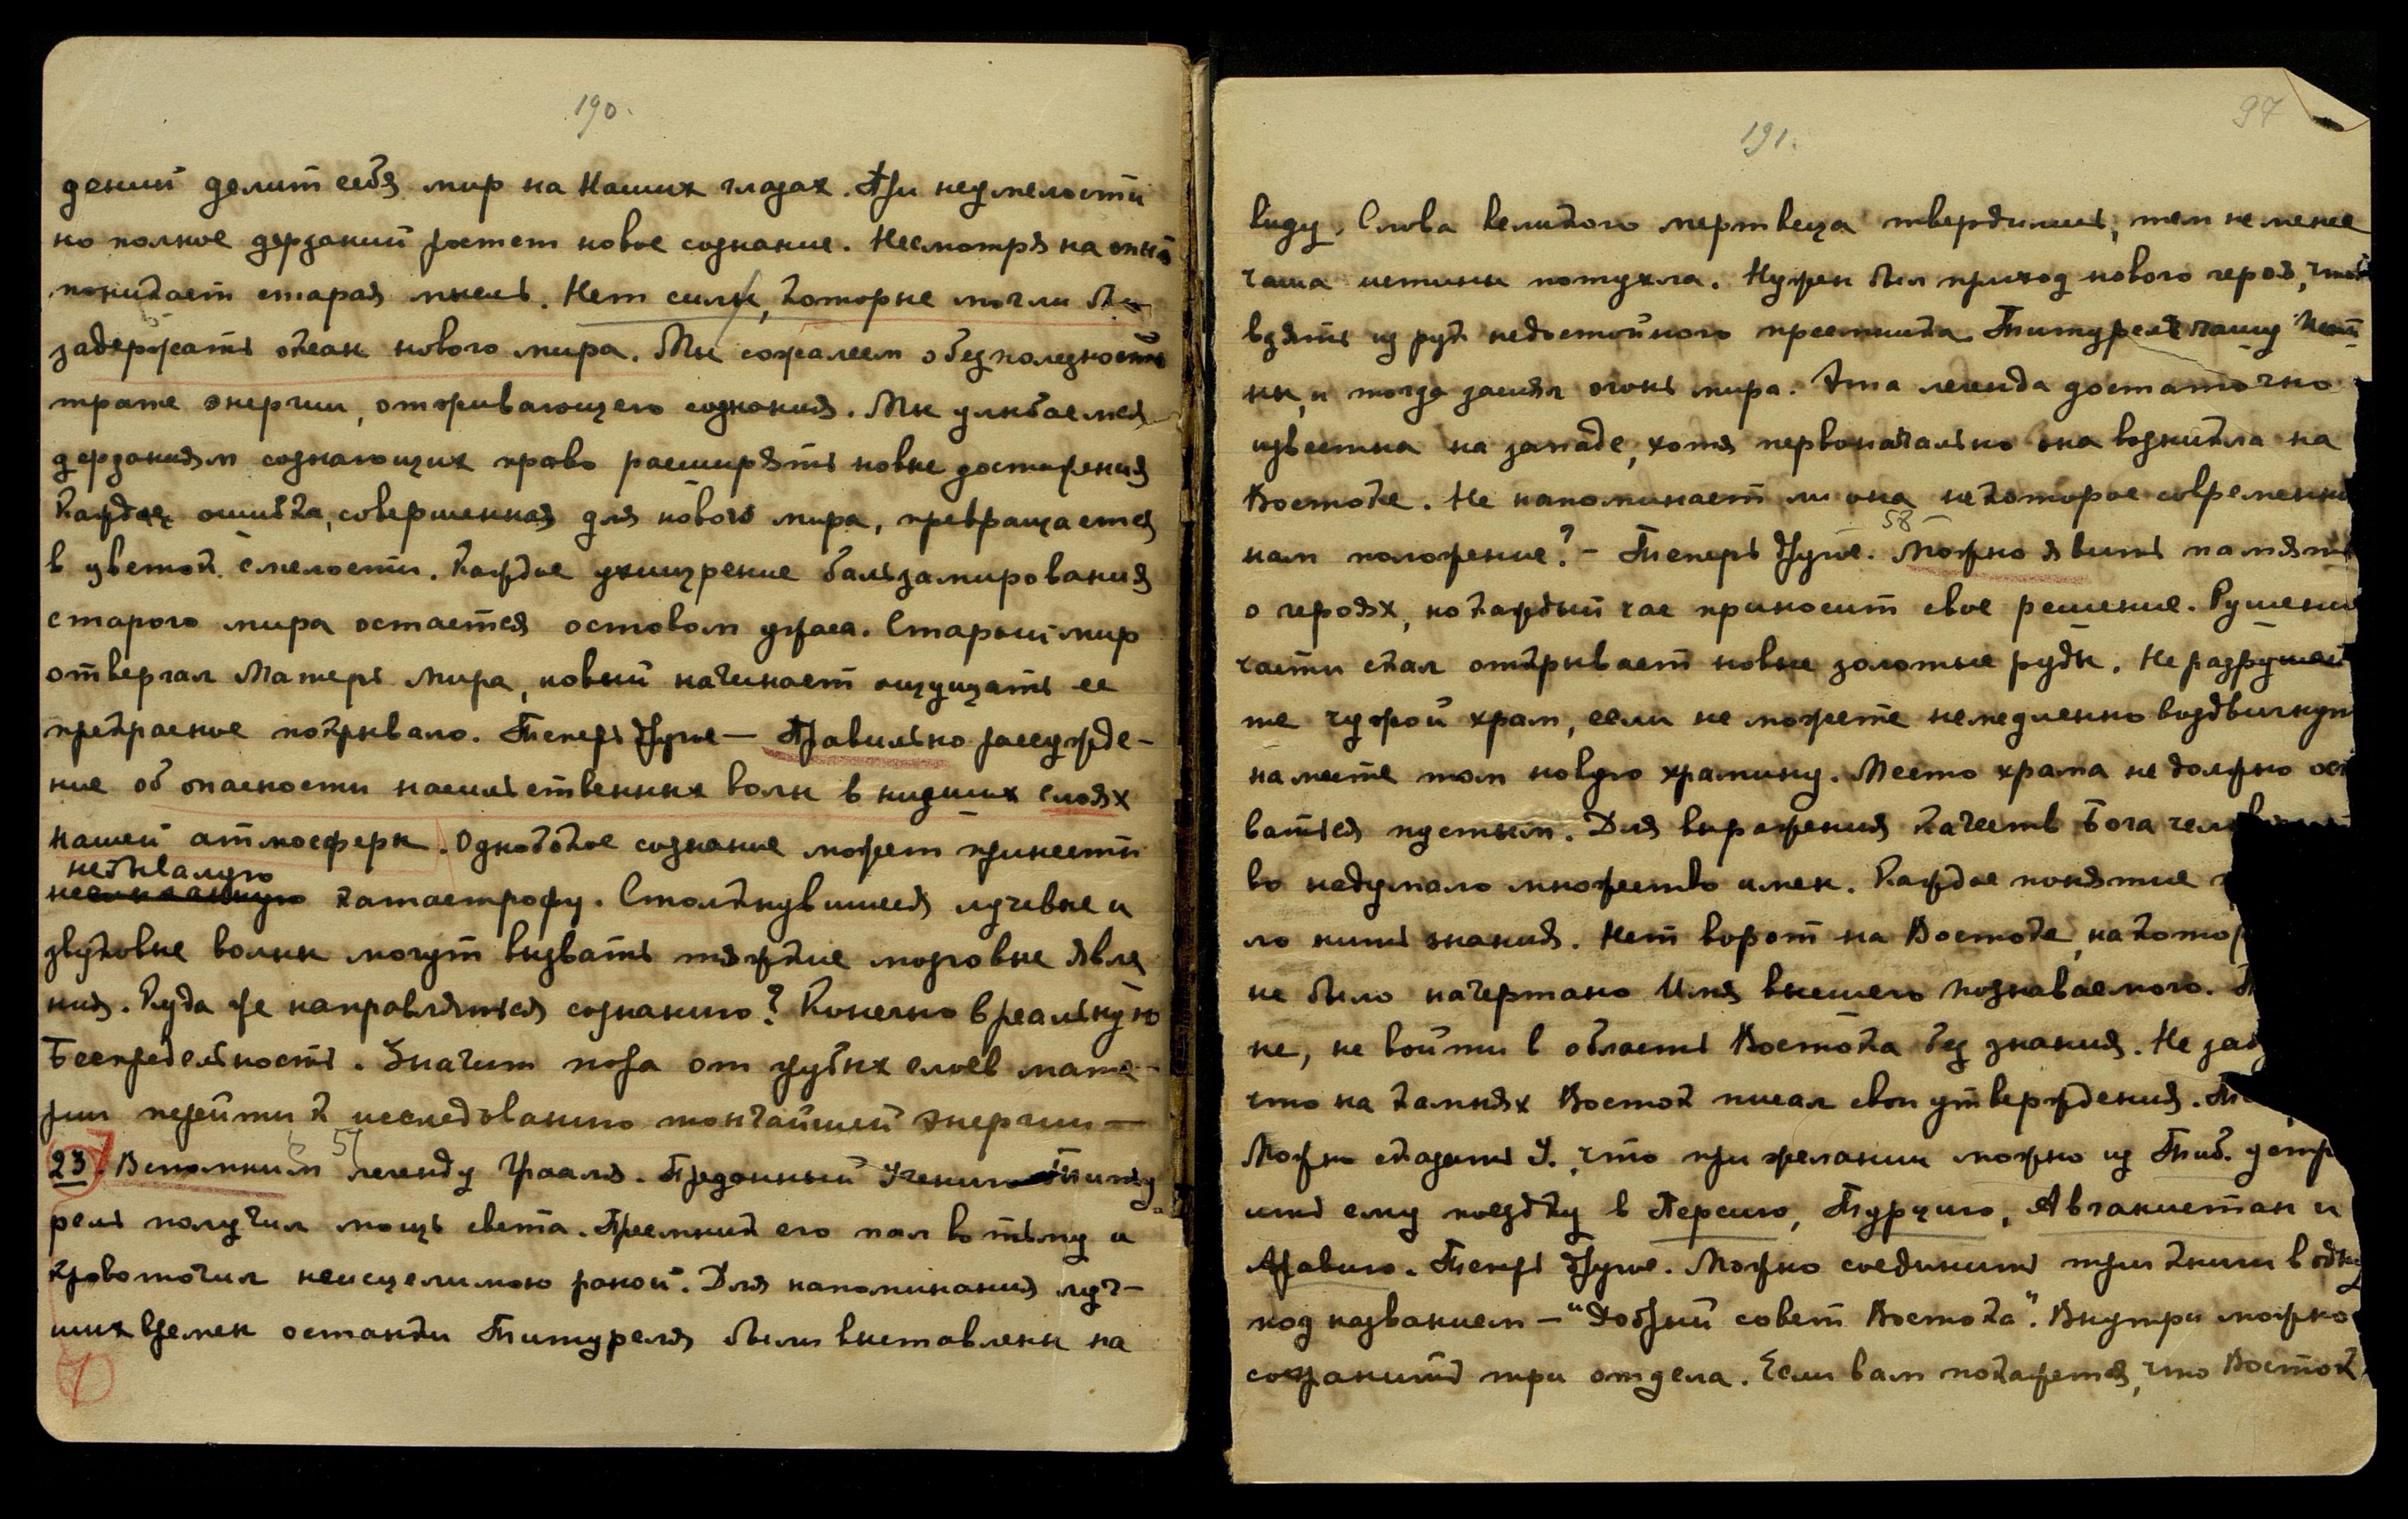 190.
дений делит себя мир на Наших глазах. При неумелости
но полное дерзаний растет новое сознание. Несмотря на опыт
покидает старая мысль. Нет силы, которые могли бы
задержать океан нового мира. Мы сожалеем о бесполезности
трате энергии, отживающего сознания. Мы улыбаемся
дерзаниям сознающих право расширять новые достижения
Каждая ошибка, совершенная для нового мира, превращается
в цветок смелости. Каждое ухищрение бальзамирования
старого мира остается остовом ужаса. Старый мир
отвергал Матерь Мира, новый начинает ощущать ее
прекрасное покрывало. Теперь Другое — Правильно рассужде-
ние об опасности насильственных волн в низших слоях
нашей атмосферы. Однобокое сознание может принести
небывалую
катастрофу. Столкнувшиеся лучевые и
звуковые волны могут вызвать тяжкие мозговые явле
ния. Куда же направляться сознанию? Конечно в реальную
Беспредельность. Значит пора от грубых слоев мате-
рии перейти к исследованию тончайшей энергии —
23. Вспомним 57 легенду Грааля. Преданный Учению Титу
рель получил мощь света. Преемник его пал во тьму и
кровоточил неисцелимою раной. Для напоминания луч-
ших времен останки Титуреля были выставлены на
7
191.
97
виду. Слова великого мертвеца твердились, тем не менее
чаша истины потухла. Нужен был приход нового героя, чтоб
взять из рук недостойного преемника Титуреля чашу Исти-
ны, и тогда засиял огонь мира. Эта легенда достаточно
известна на западе, хотя первоначально она возникла на
Востоке. Не напоминает ли она некоторое современно
58
нам положение? — Теперь Другое. Можно явить память
о героях, но каждый час приносит свое решение. Рушение
части скал открывает новые золотые руды. Не разрушай
те чужой храм, если не можете немедленно воздвигнуть
на месте том новую храмину. Место храма не должно оста
ваться пустым. Для выражения качеств Бога человечест
во надумало множество имен. Каждое понятие
ло нить знания. Нет ворот на Востоке, на котор
не было начертано Имя высшего познаваемого.
не, не войти в область Востока без знания. Не заб
что на камнях Восток писал свои утверждения.
Можно сказать У., что при желании можно из Тиб. устро
ить ему поездку в Персию, Турцию, Авганистан и
Аравию. Теперь Другое. Можно соединить три книги в одну
под названием — "Добрый совет Востока". Внутри можно
сохранить три отдела. Если вам покажется, что Восток